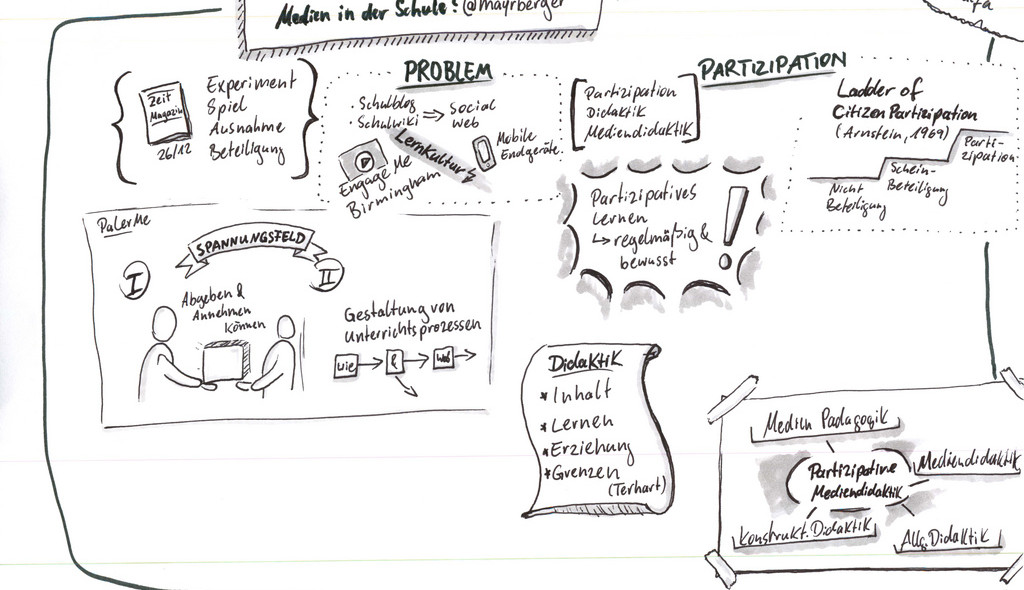 Medien in der Schule: @mayrberger
Zeit
Magazin
26/12
Experiment
Spiel
Ausnahme
Beteiligung
PROBLEM
· Schulblog
· Schulwiki
Social
Web
LernKultur
Mobile
Endgeräte
Engage Me
Birmingham
PARTIZIPATION
Partizipation
Didaktik
Mediendidaktik
Ladder of
Citizen Partizipation
(Arnstein, 1969)
Parti-
zipation
Schein-
Beteiligung
Nicht
Beteiligung
Partizipatives
Lernen
regelmäßig &
bewusst
!
PaLerMe
SPANNUNGSFELD
I
II
Abgeben &
Annehmen
können
Gestaltung von
Unterrichtsprozessen
wie
&
was
Didaktik
* Inhalt
* Lernen
* Erziehung
* Grenzen
(Terhart)
Medien Pädagogik
Mediendidaktik
Partizipative
Mediendidaktik
Konstrukt. Didaktik
Allg. Didaktik